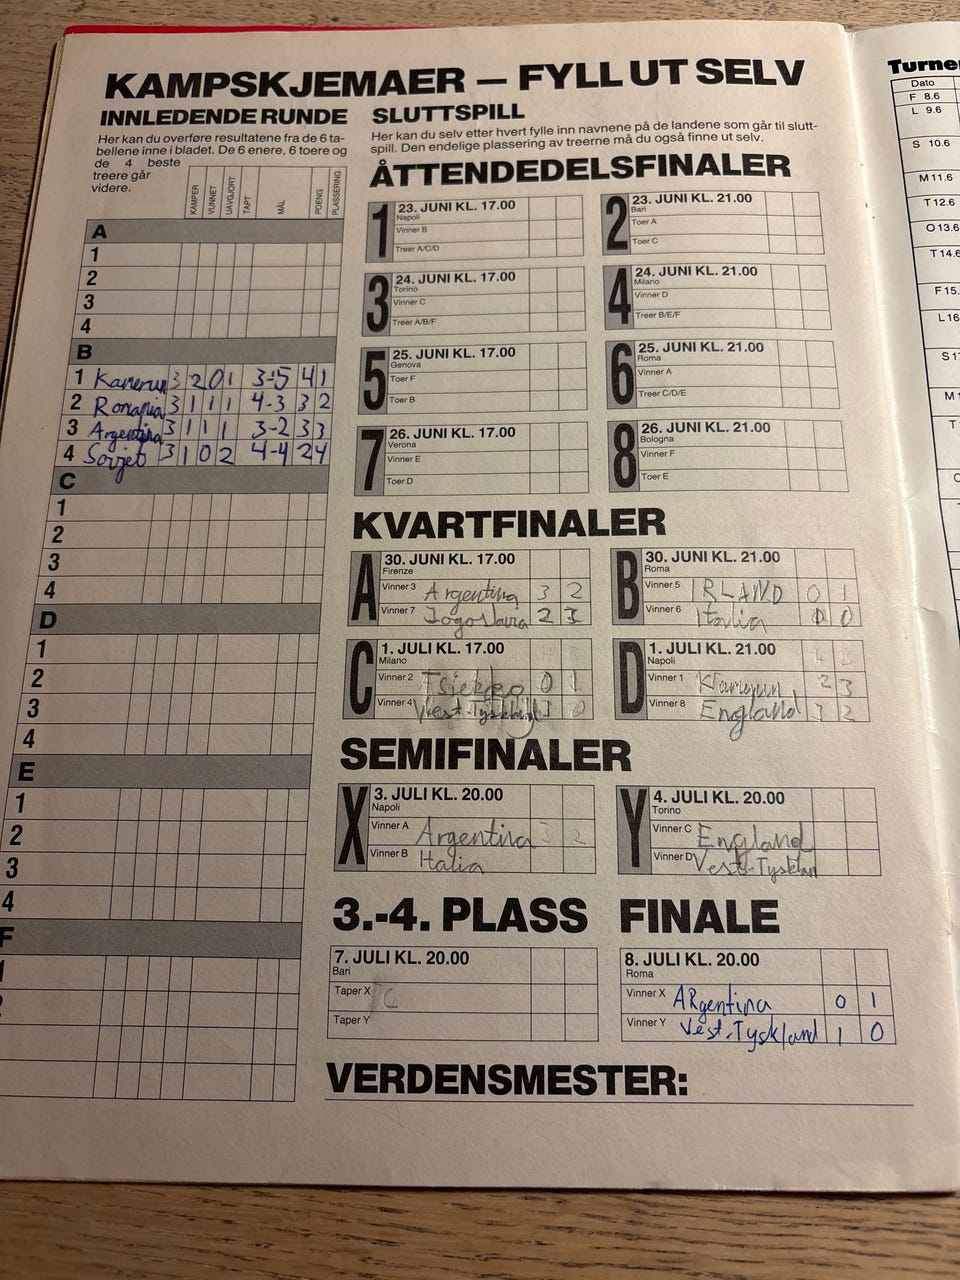 KAMPSKJEMAER – FYLL UT SELV
INNLEDENDE RUNDE
Her kan du overføre resultatene fra de 6 ta-
bellene inne i bladet. De 6 enere, 6 toere og
de 4 beste
treere går
videre.
KAMPER VUNNET UAVGJORT TAPT MÅL POENG PLASSERING
A
1
2
3
4
B
1 Kamerun 3 2 0 1 3-5 4 1
2 Romania 3 1 1 1 4-3 3 2
3 Argentina 3 1 1 1 3-2 3 3
4 Sovjet 3 1 0 2 4-4 2 4
C
1
2
3
4
D
1
2
3
4
E
1
2
3
4
F
1
SLUTTSPILL
Her kan du selv etter hvert fylle inn navnene på de landene som går til slutt-
spill. Den endelige plassering av treerne må du også finne ut selv.
ÅTTENDEDELSFINALER
1 23. JUNI KL. 17.00
Napoli
Vinner B
Treer A/C/D
2 23. JUNI KL. 21.00
Bari
Toer A
Toer C
3 24. JUNI KL. 17.00
Torino
Vinner C
Treer A/B/F
4 24. JUNI KL. 21.00
Milano
Vinner D
Treer B/E/F
5 25. JUNI KL. 17.00
Genova
Toer F
Toer B
6 25. JUNI KL. 21.00
Roma
Vinner A
Treer C/D/E
7 26. JUNI KL. 17.00
Verona
Vinner E
Toer D
8 26. JUNI KL. 21.00
Bologna
Vinner F
Toer E
KVARTFINALER
A 30. JUNI KL. 17.00
Firenze
Vinner 3 Argentina 3 2
Vinner 7 Jogoslavia 2 3
B 30. JUNI KL. 21.00
Roma
Vinner 5 IRLAND 0 1
Vinner 6 Italia 0
C 1. JULI KL. 17.00
Milano
Vinner 2 0 1
Vinner 4 Vest.Tyskland 0
D 1. JULI KL. 21.00
Napoli
Vinner 1 Kamerun 2 3
Vinner 8 England 3 2
SEMIFINALER
X 3. JULI KL. 20.00
Napoli
Vinner A Argentina 3 2
Vinner B Italia
Y 4. JULI KL. 20.00
Torino
Vinner C England
Vinner D Vest.Tysklan
3.-4. PLASS
7. JULI KL. 20.00
Bari
Taper X C
Taper Y
FINALE
8. JULI KL. 20.00
Roma
Vinner X ARgentina 0 1
Vinner Y Vest.Tyskland 1 0
VERDENSMESTER:
Turne
Dato
F 8.6
L 9.6
S 10.6
M 11.6
T 12.6
O 13.6
T 14.6
F 15.
L 16
S 1
M 1
T